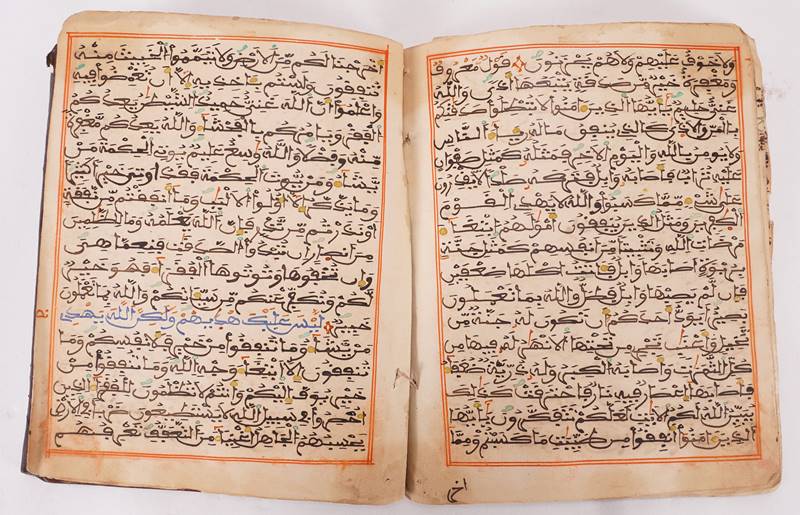 ولا خوف عليهم ولا هم يحزنون قول معروف
ومغفرة خير من صدقة يتبعها أذى والله
غني حليم يأيها الذين ءامنوا لا تبطلوا صدقتكم
بالمن والأذى كالذي ينفق ماله رئاء الناس
ولا يومن بالله واليوم الآخر فمثله كمثل صفوان
عليه تراب فأصابه وابل فتركه صلدا لا يقدرون
على شيء مما كسبوا والله لا يهدي القوم
الكفرين ومثل الذين ينفقون أموالهم ابتغاء
مرضات الله وتثبيتا من أنفسهم كمثل جنة
بربوة أصابها وابل فئاتت أكلها ضعفين
فإن لم يصبها وابل فطل والله بما تعملون
بصير أيود أحدكم أن تكون له جنة من
نخيل وأعناب تجري من تحتها الأنهر له فيها من
كل الثمرات وأصابه الكبر وله ذرية ضعفاء
فأصابها إعصار فيه نار فاحترقت كذلك
يبين الله لكم الآيت لعلكم تتفكرون يأيها
الذين ءامنوا أنفقوا من طيبت ما كسبتم ومما
أخر
أخرجنا لكم من الأرض ولا تيمموا الخبيث منه
تنفقون ولستم بئاخذيه إلا أن تغمضوا فيه
واعلموا أن الله غني حميد الشيطن يعدكم
الفقر ويامركم بالفحشاء والله يعدكم مغفرة
منه وفضلا والله وسع عليم يوتي الحكمة من
يشاء ومن يوت الحكمة فقد أوتي خيرا كثيرا
وما يذكر إلا أولوا الألبب وما أنفقتم من نفقة
أو نذرتم من نذر فإن الله يعلمه وما للظلمين
من أنصار إن تبدوا الصدقت فنعما هي
وإن تخفوها وتوتوها الفقراء فهو خير
لكم ونكفر عنكم من سيئاتكم والله بما تعملون
خبير ليس عليك هديهم ولكن الله يهدي
من يشاء وما تنفقوا من خير فلأنفسكم وما
تنفقون إلا ابتغاء وجه الله وما تنفقوا من
خير يوف إليكم وأنتم لا تظلمون للفقراء الذين
أحصروا في سبيل الله لا يستطيعون ضربا في الأرض
يحسبهم الجاهل أغنياء من التعفف تعرفهم